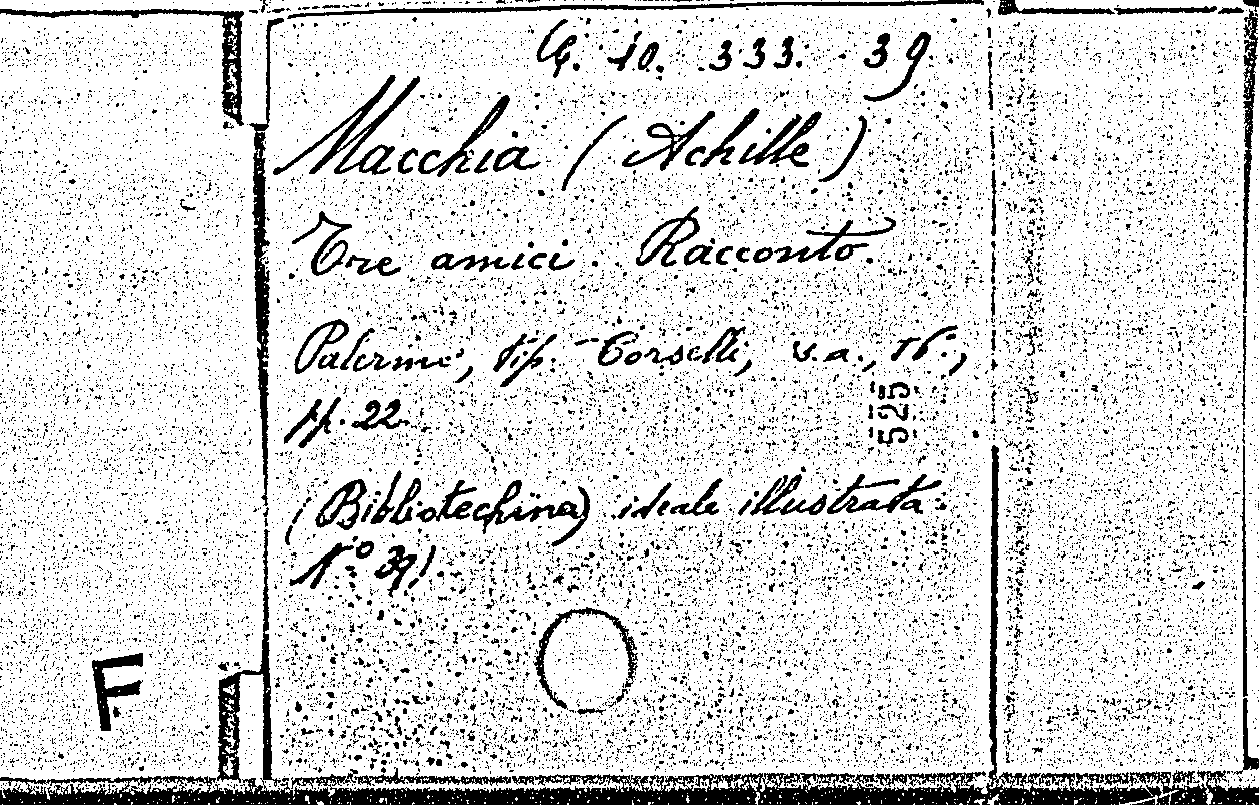 G. 10. 333. 39
Macchia (Achille)
Tre amici. Racconto.
Palermo, tip. Corselli, s.a., 16°,
pp. 22.
525
(Bibliotechina) ideale illustrata.
N.º 39).
F